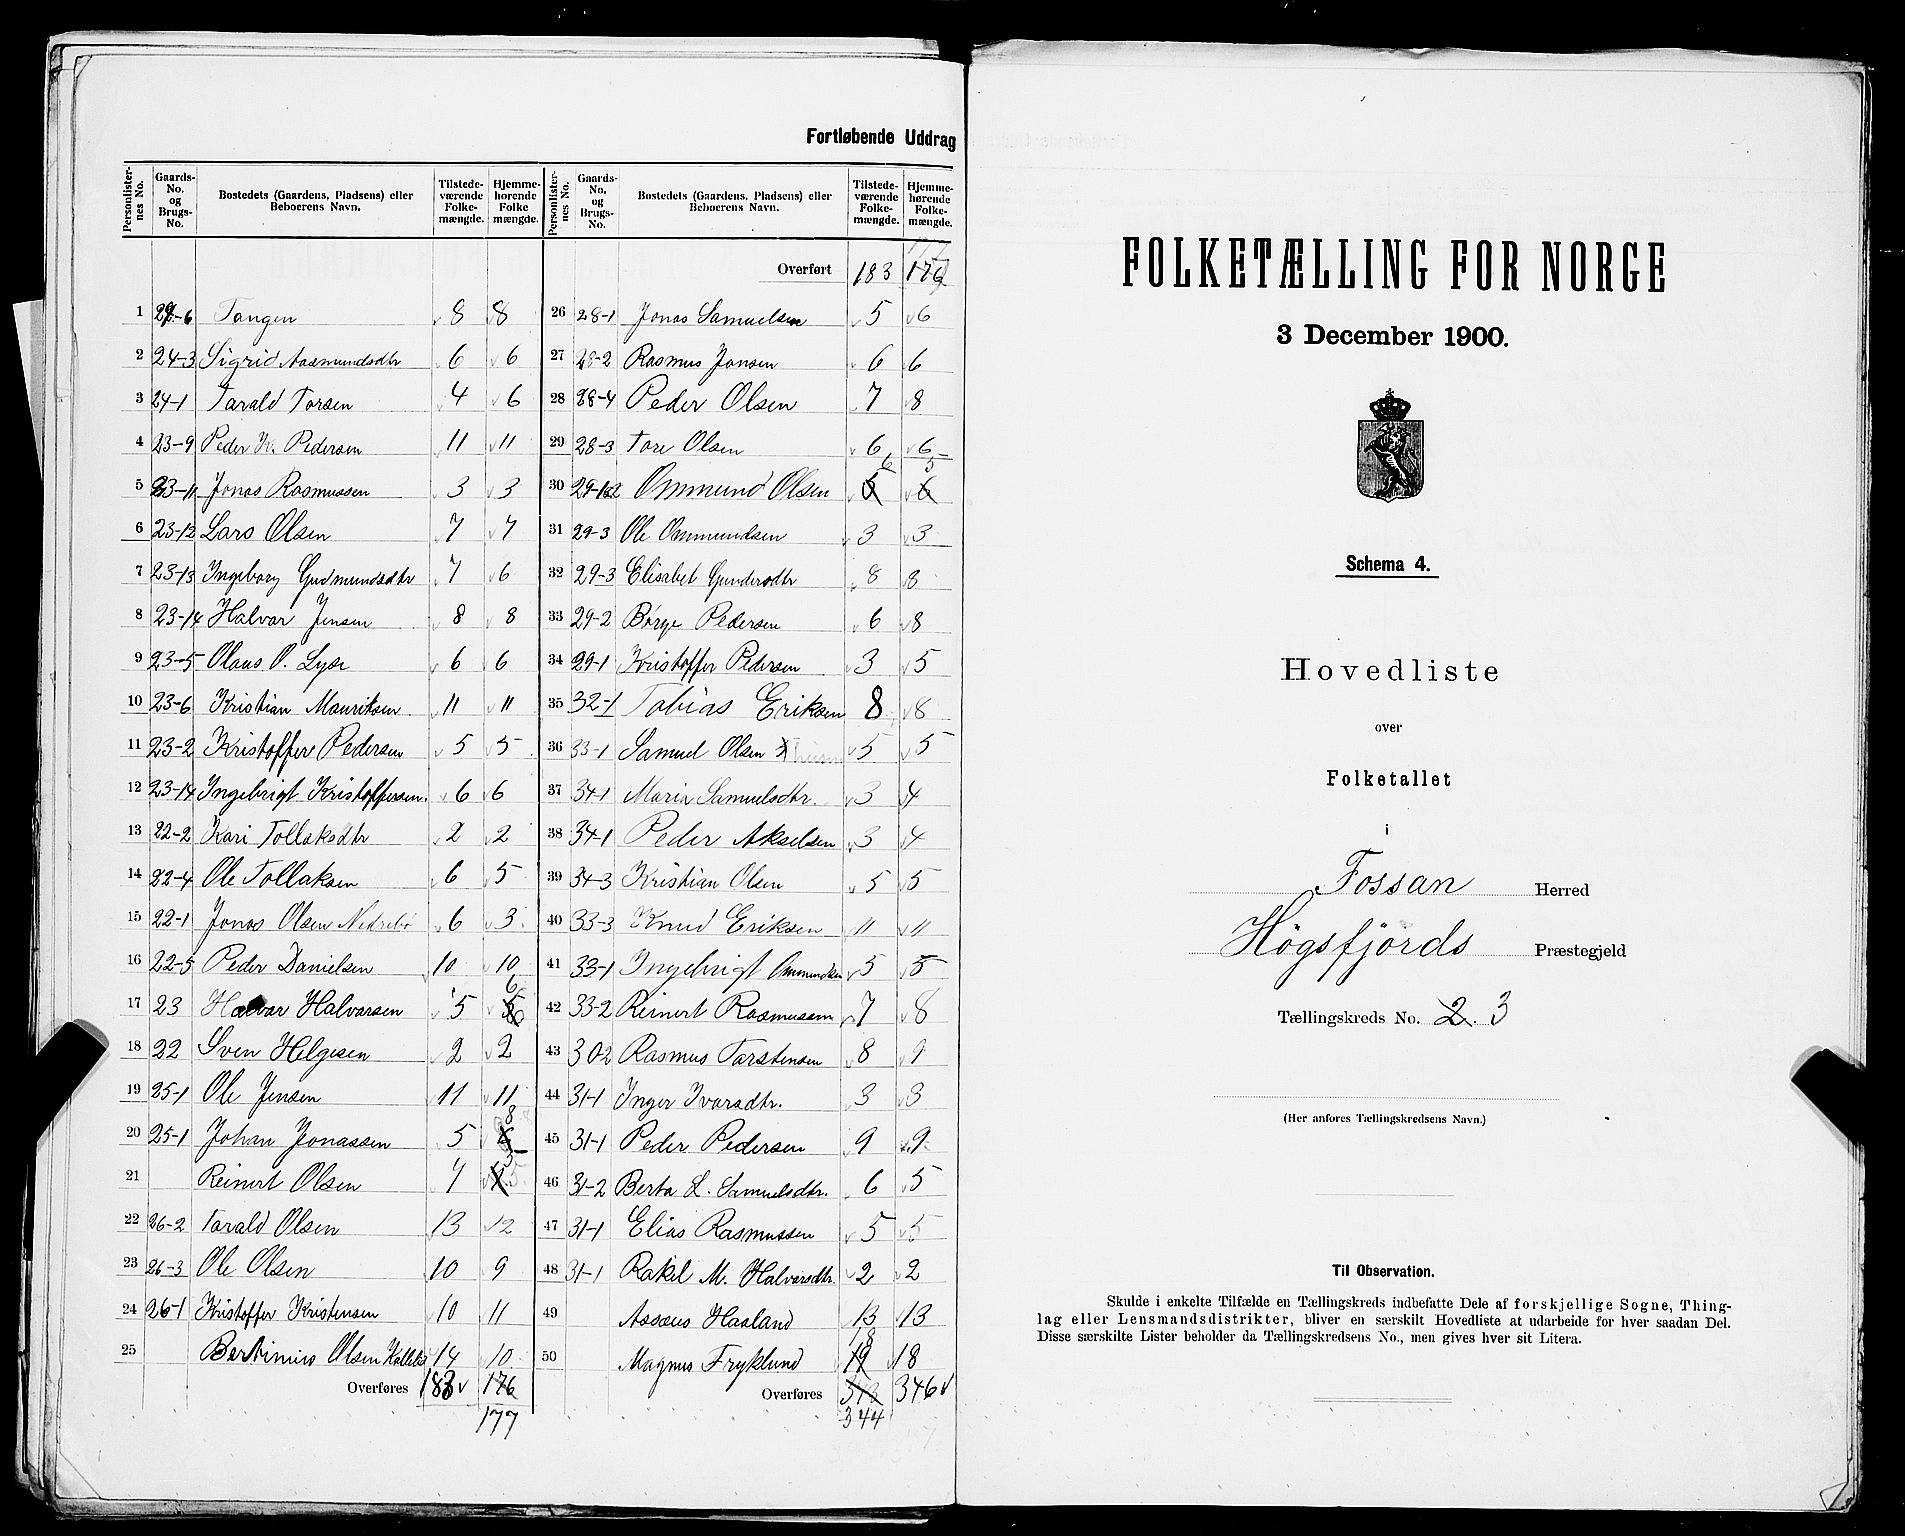 Fortløbende Uddrag
Personlister-nes No. Gaards-No. og Brugs-No. Bostedets (Gaardens, Pladsens) eller Beboerens Navn. Tilstede-værende Folke-mængde. Hjemme-hørende Folke mængde.
1 6 Tangen 8 8
2 24-3 Sigrid Aasmundsdtr 6 6
3 24-1 Tarald Torsen 4 6
4 23-9 Peder K. Pedersen 11 11
5 23-11 Jonas Rasmussen 3 3
6 23-12 Lars Olsen 7 7
7 23-13 Ingeborg Gudmundsdtr 7 6
8 23-14 Halvar Jensen 8 8
9 23-5 Olaus O. Lyse 6 6
10 23-6 Kristian Mauritsen 11 11
11 23-2 Kristoffer Pedersen 5 5
12 23-14 Ingebrigt Kristoffersen 6 6
13 22-2 Kari Tollaksdtr 2 2
14 22-4 Ole Tollaksen 6 5
15 22-1 Jonas Olsen Nedrebø 6 3
16 22-5 Peder Danielsen 10 10
17 23 Halvar Halvarsen 5 6
18 22 Sven Helgesen 2 2
19 25-1 Ole Jensen 11 11
20 25-1 Johan Jonassen 5 8
21 Reinert Olsen 4 5
22 26-2 Tarald Olsen 13 12
23 26-3 Ole Olsen 10 9
24 26-1 Kristoffer Kristensen 10 11
25 Bertinius Olsen 14 10
Overføres 183 176
177
Personlister-nes No. Gaards-No. og Brugs-No. Bostedets (Gaardens, Pladsens) eller Beboerens Navn. Tilstede-værende Folke-mængde. Hjemme-hørende Folke-mængde.
Overført 183 176
26 28-1 Jonas Samuelsen 5 6
27 28-2 Rasmus Jonsen 6 6
28 28-4 Peder Olsen 7 8
29 28-3 Tore Olsen 6 6
30 Ommund Olsen 6 5
31 29-3 Ole Ommundsen 3 3
32 29-3 Elisabet Gundersdtr 8 8
33 29-2 Børge Pedersen 6 8
34 29-1 Kristoffer Pedersen 3 5
35 32-1 Tobias Eriksen 8 8
36 33-1 Samuel Olsen 5 5
37 34-1 Maria Samuelsdtr. 3 4
38 34-1 Peder Akselsen 3 4
39 34-3 Kristian Olsen 5 5
40 33-3 Knud Eriksen 11 11
41 33-1 Ingebrigt Ommundsen 5 5
42 33-2 Reinert Rasmussen 7 8
43 302 Rasmus Tarstensen 8 9
44 31-1 Inger Ivarsdtr. 3 3
45 31-1 Peder Pedersen 9 9
46 31-2 Berta L. Samuelsdtr. 6 5
47 31-1 Elias Rasmussen 5 5
48 31-1 Rakel M. Halvarsdtr. 2 2
49 Assæus Haaland 13 13
50 Magnus Fryklund 18 18
Overføres 343 346
344
FOLKETÆLLING FOR NORGE
3 December 1900.
Schema 4.
Hovedliste
over
Folketallet
i
Fossan Herred
Högsfjörds Præstegjeld
Tællingskreds No. 2. 3
(Her anføres Tællingskredsens Navn.)
Til Observation.
Skulde i enkelte Tilfælde en Tællingskreds indbefatte Dele af forskjellige Sogne, Thing-
lag eller Lensmandsdistrikter, bliver en særskilt Hovedliste at udarbeide for hver saadan Del.
Disse særskilte Lister beholder da Tællingskredsens No., men gives hver sit Litera.